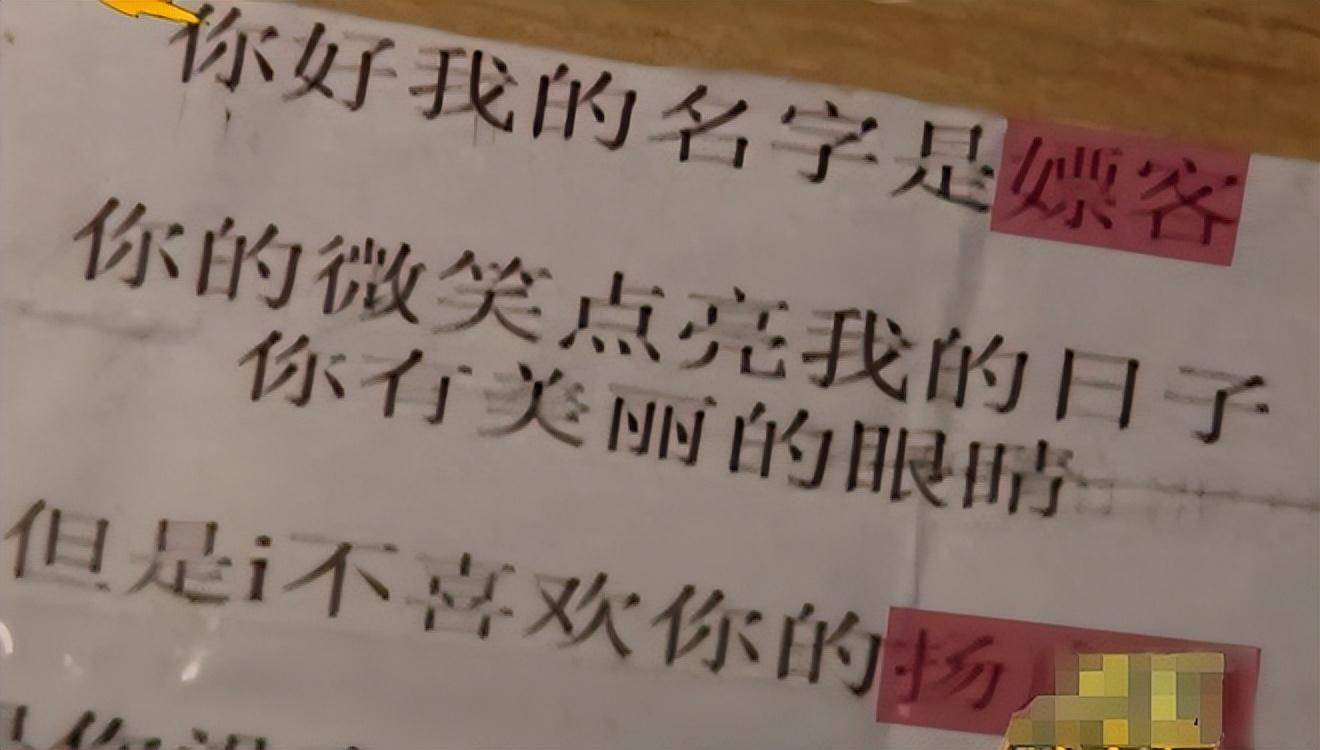 你好我的名字是嫖客
你的微笑点亮我的日子
你有美丽的眼睛
但是i不喜欢你的扬